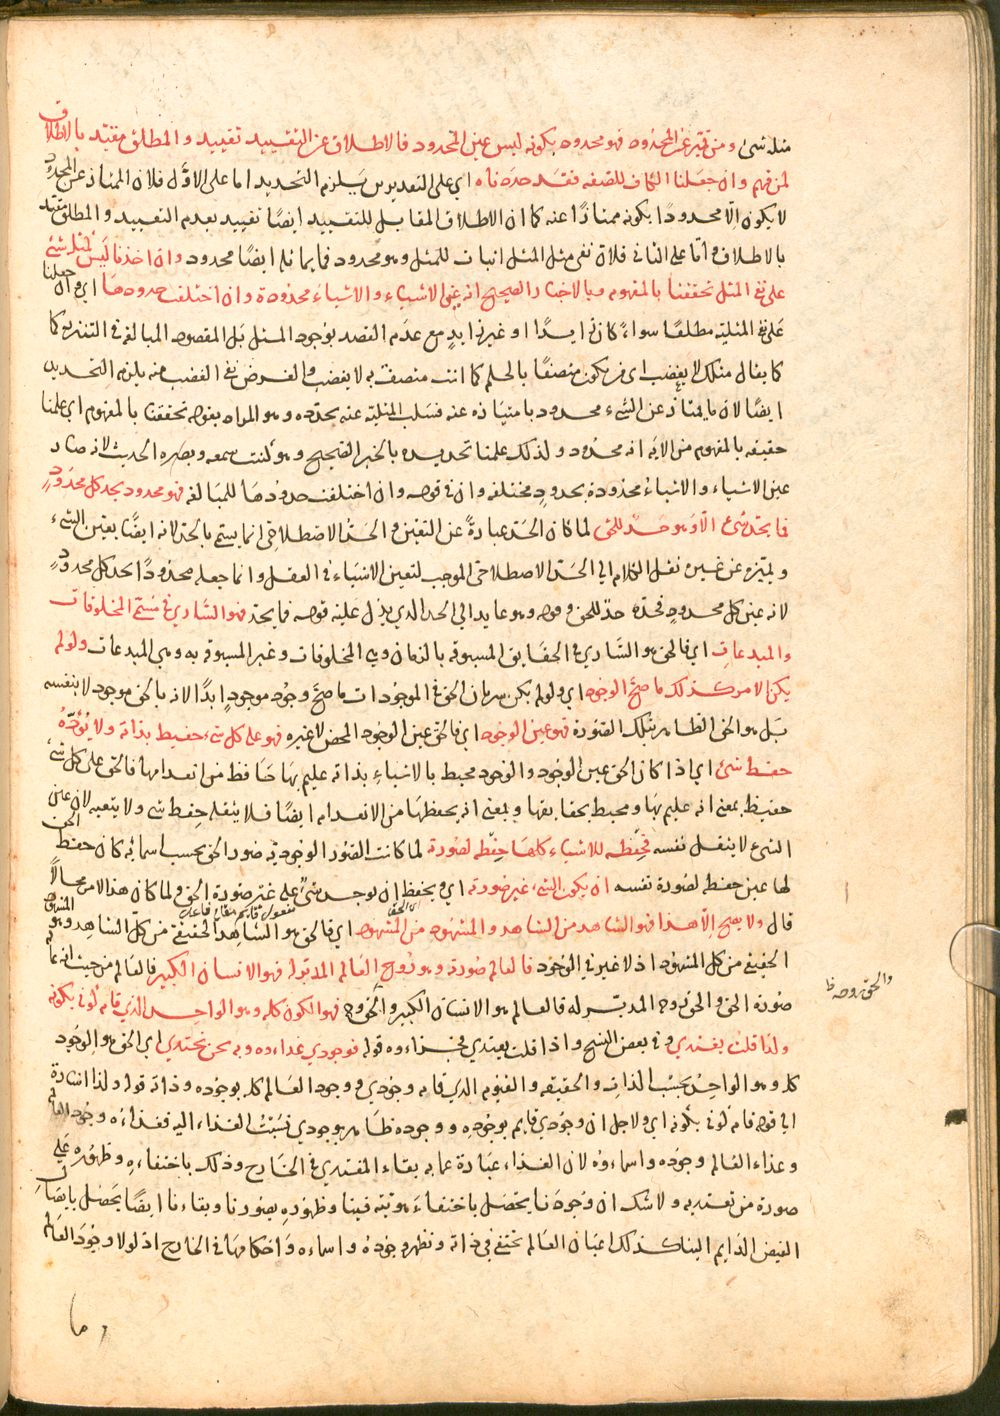 مثله شئ ومن تميز عن المحدود فهو محدود بكونه ليس عين المحدود فالاطلاق عن التقييد تقييد والمطلق مقيد بالاطلاق
لمن فهم وان جعلنا الكاف للصفه فقد حددناه اي على التقديرين يلزم التحديد اما على الاول فلان الممتاز عن المحدود
لا يكون الا محدودا بكونه ممتازا عنه كما ان الاطلاق المقابل للتقييد ايضا تقييد بعدم التقييد والمطلق مقيد
بالاطلاق واما على الثانى فلان نفى مثل المثل اثبات للمثل وهو محدود فما يماثله ايضا محدود وان اخذنا ليس كمثله شئ
على نفى المثل تحققنا بالمفهوم وبالاخبار الصحيح انه عين الاشياء والاشياء محدودة وان اختلفت حدودها اي وان حملنا
على نفى المثلية مطلقا سواء كان زايدا او غير زايد مع عدم القصد بوجود المثل بل المقصود المبالغة فى التنزيه كما
كما يقال مثلك لا يغضب اى من يكون متصفا بالحلم كما انت متصف به لا يغضب والغرض نفى الغضب منه يلزم التحديد
ايضا لان ما يمتاز عن الشىء محدود بامتيازه عنه فسلب المثلية عنه يحدده وهو المراد بقوله تحققنا بالمفهوم اي علمنا
حقيقه بالمفهوم من الآية انه محدود ولذلك علمنا تحديده بالخبر الصحيح وهو كنت سمعه وبصره الحديث لانه صار
عين الاشياء والاشياء محدودة بحدود مختلفه وان فى قوله وان اختلفت حدودها للمبالغة فهو محدود بحد كل محدود
فما يحد شئ الا وهو حد للحق لما كان الحد عبارة عن التعين والحد الاصطلاحى انما يسمى بالحد لانه ايضا يعين الشىء
ويميزه عن غيره نقل الكلام الى الحد الاصطلاحى الموجب لتعين الاشياء فى العقل وانما جعله محدودا بحد كل محدود
لانه عين كل محدود فحده حد للحق وقوله وهو عايد الى الحد الذي يدل عليه قوله فما يحد فهو السارى فى مسمى المخلوقات
والمبدعات اي فالحق هو السارى فى الحقايق المسبوقة بالزمان وهى المخلوقات وغير المسبوقة به وهى المبدعات ولو لم
يكن الامر كذلك ما صح الوجود اي ولو لم يكن سريان الحق فى الموجودات ما صح وجود موجود ابدا لانه بالحق موجود لا بنفسه
بل هو الحق الظاهر بتلك الصورة فهو عين الوجود اي فالحق عين الوجود المحض لا غيره فهو على كل شىء حفيظ بذاته ولا يؤده
حفظ شئ اي اذا كان الحق عين الوجود والوجود محيط بالاشياء بذاته عليم بها حافظ من انعدامها فالحق على كل شىء
حفيظ بمعنى انه عليم بها ومحيط بحقايقها وبمعنى انه يحفظها من الانعدام ايضا فلا يثقله حفظ شى ولا يتعبه لان عين
الشىء لا يثقل نفسه فحفظه للاشياء كلها حفظه لصورته لما كانت الصور الوجودية صور الحق بحسب اسمائه كان حفظ الحق
لها عين حفظه لصورة نفسه ان يكون الشىء غير صورته اي ويحفظ ان يوجد شىء على غير صورة الحق ولما كان هذا الامر محالا
قال ولا يصح الا هذا فهو الشاهد من الشاهد والمشهود من المشهود اي فالحق هو الشاهد الحقيقى من كل الشاهد وهو المشهود
الحقيقى من كل المشهود اذ لا غير فى الوجود فالعالم صورته وهو روح العالم المدبر له فهو الانسان الكبير فالعالم من حيث انه عالم
صورة الحق والحق روح المدبر له فالعالم هو الانسان الكبير والحق روحه فهو الكون كله وهو الواحد الذى قام كونى بكونه
والحق روحه ظ
ولذا قلت يغتدي وفى بعض النسخ واذا قلت يغتدي فجزاءه قوله فوجودي غذاءه وبه نحن نحتدي اي الحق هو الوجود
كله وهو الواحد بحسب الذات والحقيقه والقيوم الذي قام وجودي ووجود العالم كله بوجوده وذاته قوله ولذا اشارة
الى قوله قام كونى بكونه اي ولاجل ان وجودي قايم بوجوده ووجوده ظاهر بوجودي نسبت الغذاء اليه فغذاءه وجود العالم
وغذاء العالم وجوده واسماءه لان الغذاء عبارة عما به بقاء المغتدي فى الخارج وذلك باختفاءه وظهوره على
صورة من تغتذ به ولا شك ان وجودنا يحصل باختفاء هويته فينا وظهوره بصورنا وبقاءنا ايضا يحصل بايصال
الفيض الدايم الينا كذلك اعيان العالم تختفى فى ذاته وتظهر وجوده واسماءه واحكامها فى الخارج اذ لولا وجود العالم